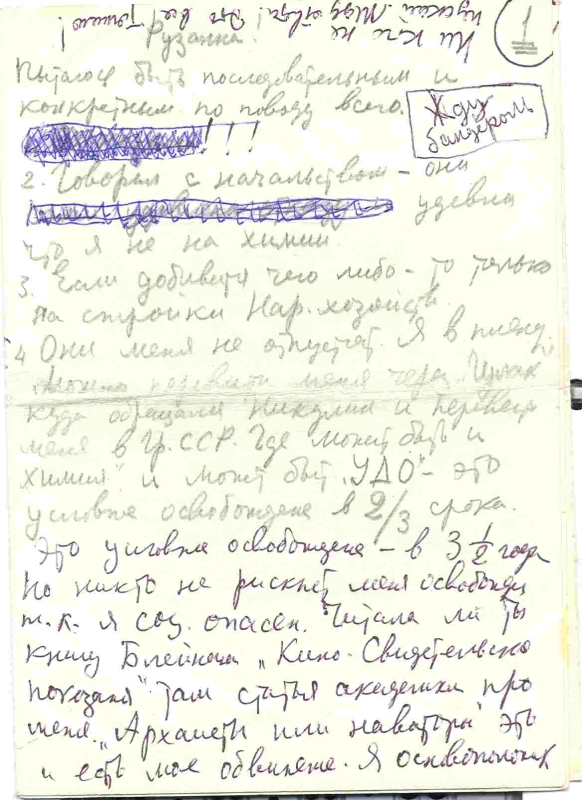 Ни кто не
пускай
Это все
!
1
Рузанна.
Пытаюсь быть последовательным и
конкретным по поводу всего.
Жду
бандероль
!!!
2. Говорил с начальством – они
удевле
что я не на химии
3. Если добиватя чего либо – то только
на стройки Нар. хозяйств.
4 Они меня не отпустят. Я в плену.
Можно перевести меня через
куда обращался Никулин и
меня в Гр. ССР. Где может быть и
химия" и может быть „УДО" – это
условне освобождене в 2/3 срока.
Это условне освобождене – в 3 1/2 года
Но никто не рискнет меня освободи
т.к. я соц. опасен. Читала ли ты
книгу Блеймана „Кино-Свидетельско
показаня" там статья академика про
меня „Архаисты или наваторы" это
и есть мое обвинене. Я основоположник